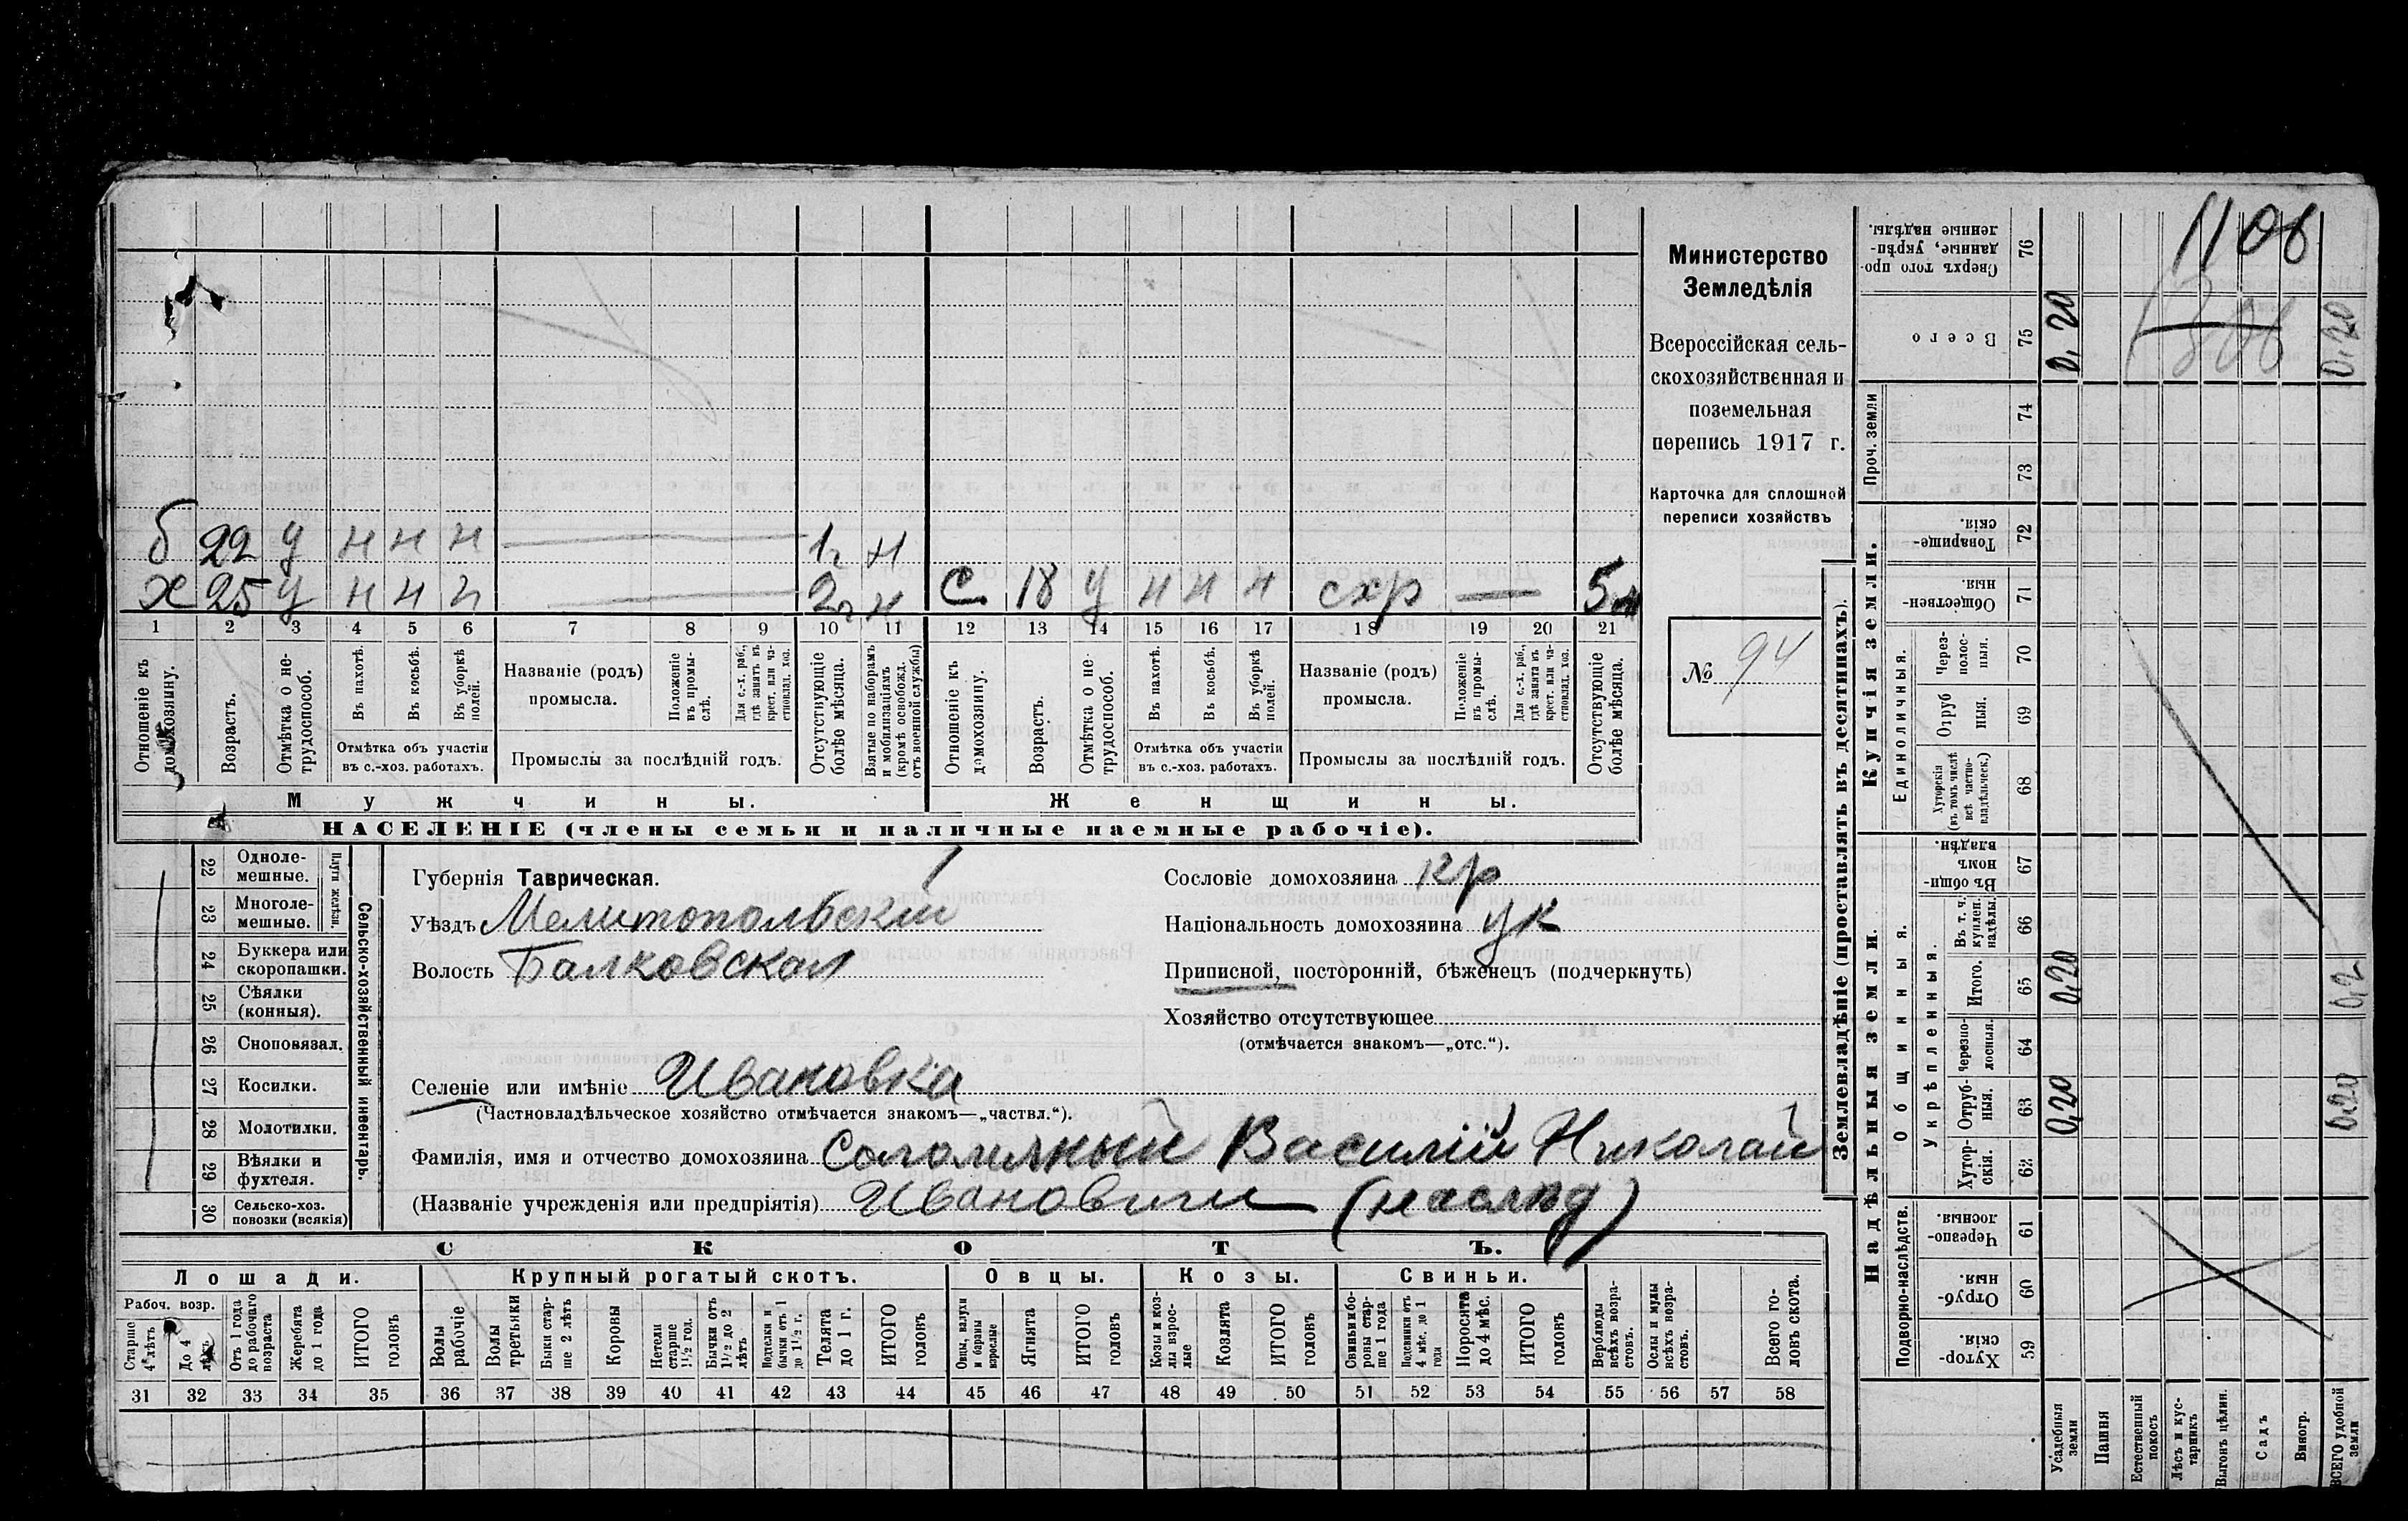 1106
306
Министерство
Земледѣлія
Всероссійская сель-
скохозяйственная и
поземельная
перепись 1917 г.
Карточка для сплошной
переписи хозяйствъ
№ 94
б 22 у н н н — 1 н
х 25 у н н н — 2 н с 18 у н н н схр — 5
1 2 3 4 5 6 7 8 9 10 11 12 13 14 15 16 17 18 19 20 21
Отношеніе къ домохозяину.
Возрастъ.
Отмѣтка о не-трудоспособ.
Въ пахотѣ.
Въ косьбѣ.
Въ уборкѣ полей.
Отмѣтка объ участіи
въ с.-хоз. работахъ.
Названіе (родъ)
промысла.
Положеніе въ промы-слѣ.
Для с.-х. раб., гдѣ занятъ въ крест. или ча-стновлад. хоз.
Промыслы за послѣдній годъ.
Отсутствующіе болѣе мѣсяца.
Взятые по наборамъ и мобилизаціямъ (кромѣ освобожд. отъ военной службы)
Отношеніе къ домохозяину.
Возрастъ.
Отмѣтка о не трудоспособ.
Въ пахотѣ.
Въ косьбѣ.
Въ уборкѣ полей.
Отмѣтка объ участіи
въ с.-хоз. работахъ.
Названіе (родъ)
промысла.
Положеніе въ промы-слѣ.
Для с.-х. раб., гдѣ занятъ въ крест. или ча-стновлад. хоз.
Промыслы за послѣдній годъ.
Отсутствующіе болѣе мѣсяца.
Мужчины. Женщины.
НАСЕЛЕНІЕ (члены семьи и наличные наемные рабочіе).
22 Одноле-мешные.
23 Многоле-мешные.
Плуги желѣзн.
24 Буккера или скоропашки.
25 Сѣялки (конныя).
26 Сноповязал.
27 Косилки.
28 Молотилки.
29 Вѣялки и фухтеля.
30 Сельско-хоз. повозки (всякія)
Сельско-хозяйственный инвентарь.
Губернія Таврическая.
Уѣздъ Мелитопольскій
Волость Балковская
Сословіе домохозяина кр
Національность домохозяина ук
Приписной, посторонній, бѣженецъ (подчеркнуть)
Хозяйство отсутствующее
(отмѣчается знакомъ—„отс.“).
Селеніе или имѣніе Ивановка
(Частновладѣльческое хозяйство отмѣчается знакомъ—„частвл.“).
Фамилія, имя и отчество домохозяина Василій Николай
(Названіе учрежденія или предпріятія) Ивановичи (наслѣд)
СКОТЪ.
Лошади. Крупный рогатый скотъ. Овцы. Козы. Свиньи.
Рабоч. возр.
Старше 4 лѣтъ
До 4 лѣтъ
Отъ 1 года до рабочаго возраста
Жеребята до 1 года
ИТОГО головъ
Волы рабочіе
Волы третьяки
Быки стар-ше 2 лѣтъ
Коровы
Нетели старше 1½ год.
Бычки отъ 1½ до 2 лѣтъ
Подтелки и бычки отъ 1 до 1½ г.
Телята до 1 г.
ИТОГО головъ
Овцы, валухи и бараны взрослые
Ягнята
ИТОГО головъ
Козы и коз-лы взрос-лые
Козлята
ИТОГО головъ
Свиньи и бо-ровы стар-ше 1 года
Подсвинки отъ 4 мѣс. до 1 года
Поросята до 4 мѣс.
ИТОГО головъ
Верблюды всѣхъ возра-стовъ.
Ослы и мулы всѣхъ возра-стовъ.
Всего го-ловъ скота.
31 32 33 34 35 36 37 38 39 40 41 42 43 44 45 46 47 48 49 50 51 52 53 54 55 56 57 58
Землевладѣніе (проставлять въ десятинахъ).
Купчія земли.
Надѣльныя земли.
Сверхъ того про-данные, укрѣп-ленные надѣлы. 76
Всего 75 0,20 0,20
Проч. земли 74
73
Товарище-скія. 72
Обществен-ныя. 71
Единоличныя.
Через-полос-ныя. 70
Отруб ныя. 69
Хуторскія (въ томъ числѣ всѣ частно-владѣльческ.) 68
Общинныя.
Въ общи-номъ владѣн. 67
Укрѣпленныя.
Въ т. ч. куплен. надѣлы. 66
Итого. 65 0,20 0,2
Черезпо-лосныя. 64
Отруб-ныя. 63 0,20 0,20
Хутор-скія. 62
Подворно-наслѣдств.
Черезпо-лосныя. 61
Отруб-ныя. 60
Хутор-скія. 59
Усадебныя земли
Пашня
Естественный покосъ
Лѣсъ и кус-тарникъ
Выгонъ цѣлин.
Садъ
Виногр.
ВСЕГО удобной земли